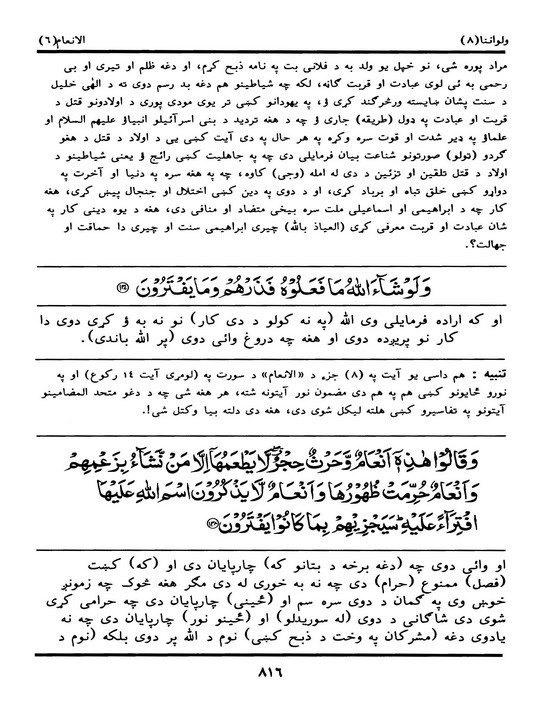 ولواننا(٨) الانعام(٦)
مراد پوره شی، نو خپل یو ولد به د فلانی بت په نامه ذبح کړم، او دغه ظلم او تیری او بی
رحمی به ئی لوی عبادت او قربت گاڼه، لکه چه شیاطینو هم دغه بد رسم دوی ته د الٰهی خلیل
د سنت پشان ښایسته ورڅرگند کړی ؤ، په یهودانو کښی تر یوی مودی پوری د اولادونو قتل د
قربت او عبادت په ډول (طریقه) جاری ؤ چه د هغه تردید د بنی اسرآئیلو انبیاؤ علیهم السلام او
علماؤ په ډیر شدت او قوت سره وکړه په هر حال په دی آیت کښی یی د اولاد د قتل د هغو
گردو (ټولو) صورتونو شناعت بیان فرمایلی دی چه په جاهلیت کښی رائج ؤ یعنی شیاطینو د
اولاد د قتل تلقین او تزئین د دی له امله (وجی) کاوه، چه په هغه سره په دنیا او آخرت په
دواړو کښی خلق تباه او برباد کړی، او د دوی په دین کښی اختلال او جنجال پیښ کړی، هغه
کار چه د ابراهیمی او اسماعیلی ملت سره بیخی متضاد او منافی دی، هغه د یوه دینی کار په
شان عبادت او قربت معرفی کړی (العیاذ بالله) چیری ابراهیمی سنت او چیری دا حماقت او
جهالت؟.
وَلَوْ شَآءَ اللّٰهُ مَا فَعَلُوْهُ فَذَرْهُمْ وَمَا يَفْتَرُوْنَ
او که اراده فرمایلی وی الله (په نه کولو د دی کار) نو نه به ؤ کړی دوی دا
کار نو پریږده دوی او هغه چه دروغ وائی دوی (پر الله باندی).
تنبیه : هم داسی یو آیت په (٨) جزء د «الانعام» د سورت په (لومړی آیت ١٤ رکوع) او په
نورو ځایونو کښی هم په هم دی مضمون نور آیتونه شته، هر هغه شی چه د دغو متحد المضامینو
آیتونو په تفاسیرو کښی هلته لیکل شوی دی، هغه دی دلته بیا وکتل شی!.
وَقَالُوْا هٰذِهٖٓ اَنْعَامٌ وَّحَرْثٌ حِجْرٌ لَّا يَطْعَمُهَآ اِلَّا مَنْ نَّشَآءُ بِزَعْمِهِمْ
وَاَنْعَامٌ حُرِّمَتْ ظُهُوْرُهَا وَاَنْعَامٌ لَّا يَذْكُرُوْنَ اسْمَ اللّٰهِ عَلَيْهَا
افْتِرَآءً عَلَيْهِ سَيَجْزِيْهِمْ بِمَا كَانُوْا يَفْتَرُوْنَ
او وائی دوی چه (دغه برخه د بتانو که) چارپایان دی او (که) کښت
(فصل) ممنوع (حرام) دی چه نه به خوری له دی مگر هغه څوک چه زمونږ
خوښ وی په گمان د دوی سره سم او (ځینی) چارپایان دی چه حرامی کړی
شوی دی شاگانی د دوی (له سوریدلو) او (ځینو نور) چارپایان دی چه نه
یادوی دغه (مشرکان په وخت د ذبح کښی) نوم د الله پر دوی بلکه (نوم د
٨١٦